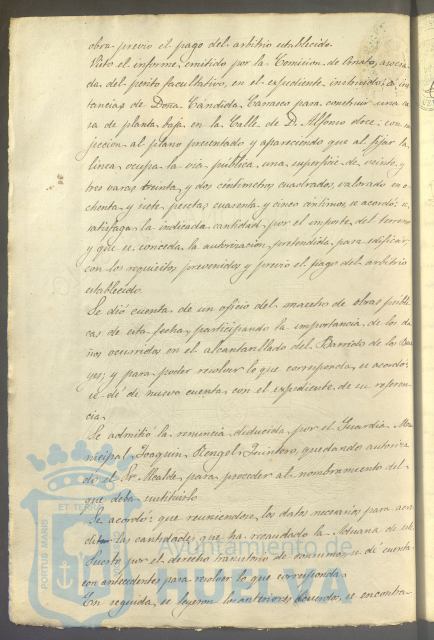 obra previo el pago del arbitrio establecido.
Visto el informe emitido por la Comision de Ornato, asocia
da del perito facultativo, en el expediente instruido, á ins
tancias de Doña Cándida Carrasco para construir una ca
sa de planta baja en la Calle de D. Alfonso doce, con su
jeccion al plano presentado y apareciendo que al fijar la
linea ocupa la via pública una superficie de veinte y
tres varas treinta y dos centímetros cuadrados, valorado en o
chenta y siete pesetas cuarenta y cinco céntimos, se acordó: se
satisfaga la indicada cantidad por el importe del terreno
y que se conceda la autorizacion pretendida para edificar,
con los requisitos prevenidos y previo el pago del arbitrio
establecido.
Se dió cuenta de un oficio del maestro de obras públi
cas de esta fecha participando la importancia de los da
ños ocurridos en el alcantarillado del Barrido de los
yes; y para poder resolver lo que corresponda, se acordó:
se dé de nuevo cuenta con el expediente de su referen
cia.
Se admitió la renuncia deducida por el Guardia Mu
nicipal Joaquin Rengel Quintero, quedando autoriza
do el Sr. Alcalde para proceder al nombramiento del
que deba sustituirlo.
Se acordó: que reuniendose los datos necesarios para acre
ditar las cantidades que ha recaudado la Aduana de este
Puerto por el derecho transitorio de consumos se dé cuenta
con antecedentes para resolver lo que corresponda.
En seguida se leyeron los anteriores acuerdos, se encontra
PORTUS MARIS
ET TERRÆ
Ayuntamiento de
HUELVA